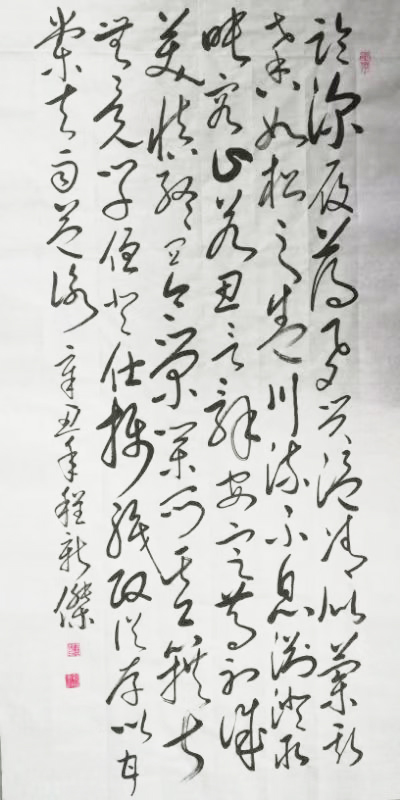 临深履薄夙兴温凊似兰斯
馨如松之盛川流不息渊澄取
映容止若思言辞安定笃初诚
美慎终宜令荣业所基籍甚
无竟学优登仕摄职政从存以甘
棠去而益咏
辛丑年程新杰